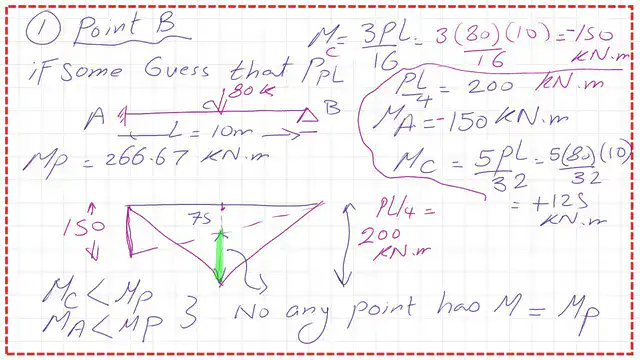 ① Point B
M_C = 3PL/16 = 3(80)(10)/16 = -150 KN.m
iF Some Guess that P_PL
PL/4 = 200 KN.m
80 K
A C B
L = 10m
M_A = -150 KN.m
M_P = 266.67 KN.m
M_C = 5PL/32 = 5(80)(10)/32
= +125 KN.m
150
75
PL/4 = 200 KN.m
M_C < M_P
M_A < M_P } No any point has M = M_P